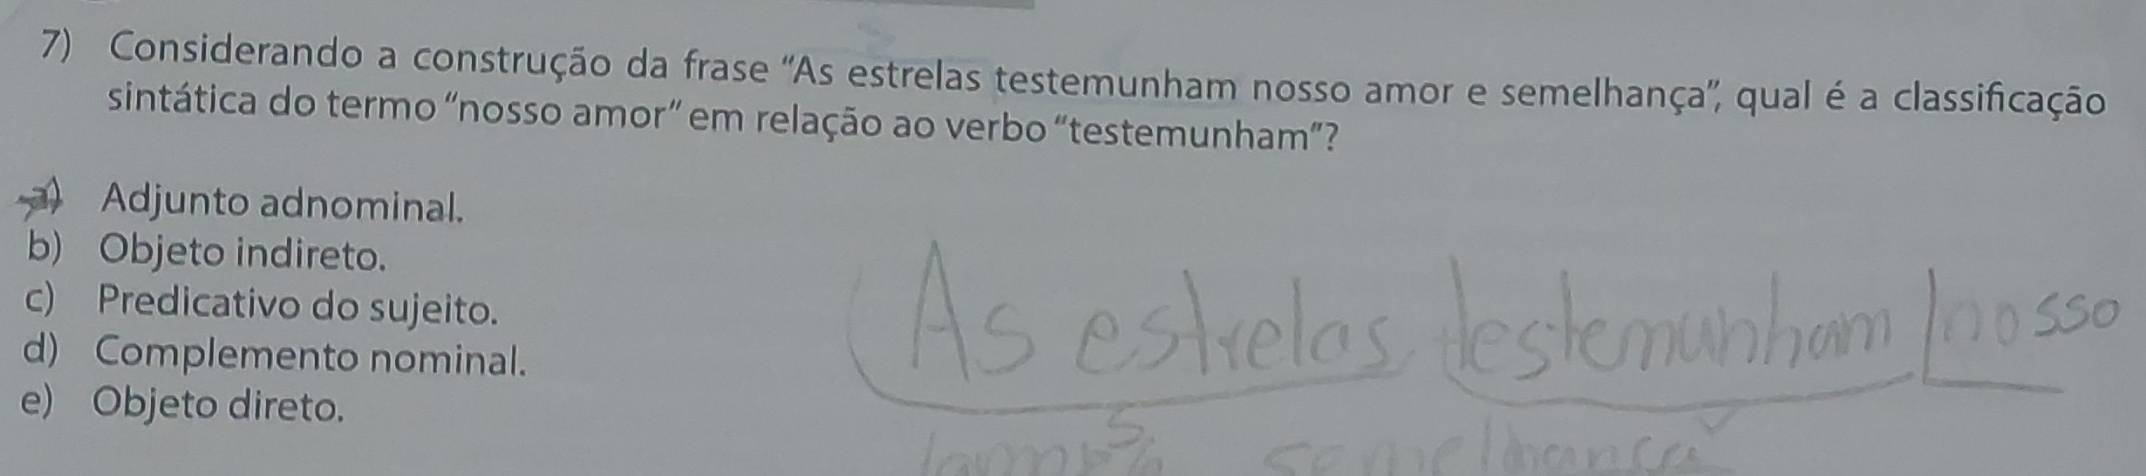 7) Considerando a construção da frase “As estrelas testemunham nosso amor e semelhança”, qual é a classificação
sintática do termo “nosso amor” em relação ao verbo “testemunham”?
a) Adjunto adnominal.
b) Objeto indireto.
c) Predicativo do sujeito.
d) Complemento nominal.
e) Objeto direto.
As estrelas testemunham nosso
S
semelhança